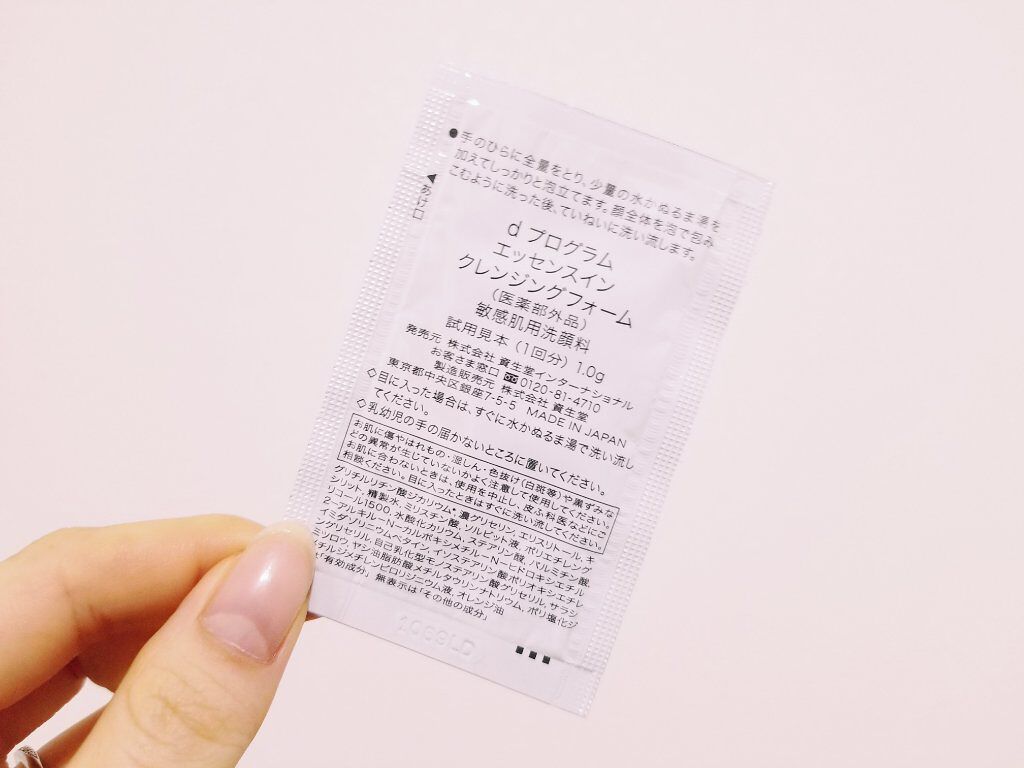 ●手のひらに全量をとり、少量の水かぬるま湯を
加えてしっかりと泡立てます。顔全体を泡で包み
こむように洗った後、ていねいに洗い流します。
◀あけ口
d プログラム
エッセンスイン
クレンジングフォーム
（医薬部外品）
敏感肌用洗顔料
試用見本（1回分）1.0g
発売元 株式会社 資生堂インターナショナル
お客さま窓口 0120-81-4710
製造販売元 株式会社 資生堂
東京都中央区銀座7-5-5 MADE IN JAPAN
◇目に入った場合は、すぐに水かぬるま湯で洗い流し
てください。
◇乳幼児の手の届かないところに置いてください。
お肌に傷やはれもの・湿しん・色抜け（白斑等）や黒ずみな
どの異常が生じていないかよく注意して使用してください。
お肌に合わないときは、使用を中止し、皮ふ科医などにご
相談ください。目に入ったときはすぐに洗い流してください。
グリチルリチン酸ジカリウム*,濃グリセリン,エリスリトール,キ
シリット,精製水,ミリスチン酸,ソルビット液,ポリエチレング
リコール1500,水酸化カリウム,ステアリン酸,パルミチン酸,
2-アルキル-N-カルボキシメチル-N-ヒドロキシエチル
イミダゾリニウムベタイン,イソステアリン酸ポリオキシエチレ
ングリセリル,自己乳化型モノステアリン酸グリセリル,サラシ
ミツロウ,ヤシ油脂肪酸メチルタウリンナトリウム,ポリ塩化ジ
メチルジメチレンピロリジニウム液,オレンジ油
*は「有効成分」無表示は「その他の成分」